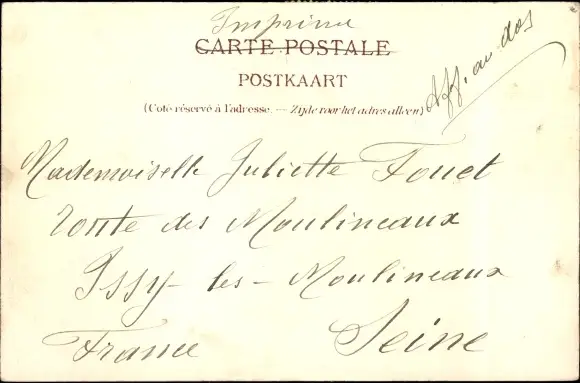 Imprimé
CARTE POSTALE
POSTKAART
(Coté réservé à l'adresse. — Zijde voor het adres alleen)
Aff. au dos
Mademoiselle Juliette Fouet
route des Moulineaux
Issy-les-Moulineaux
France Seine